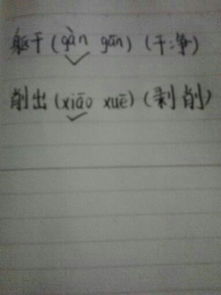 躯干(gàn gān)(干净)
削出(xiāo xuē)(剥削)